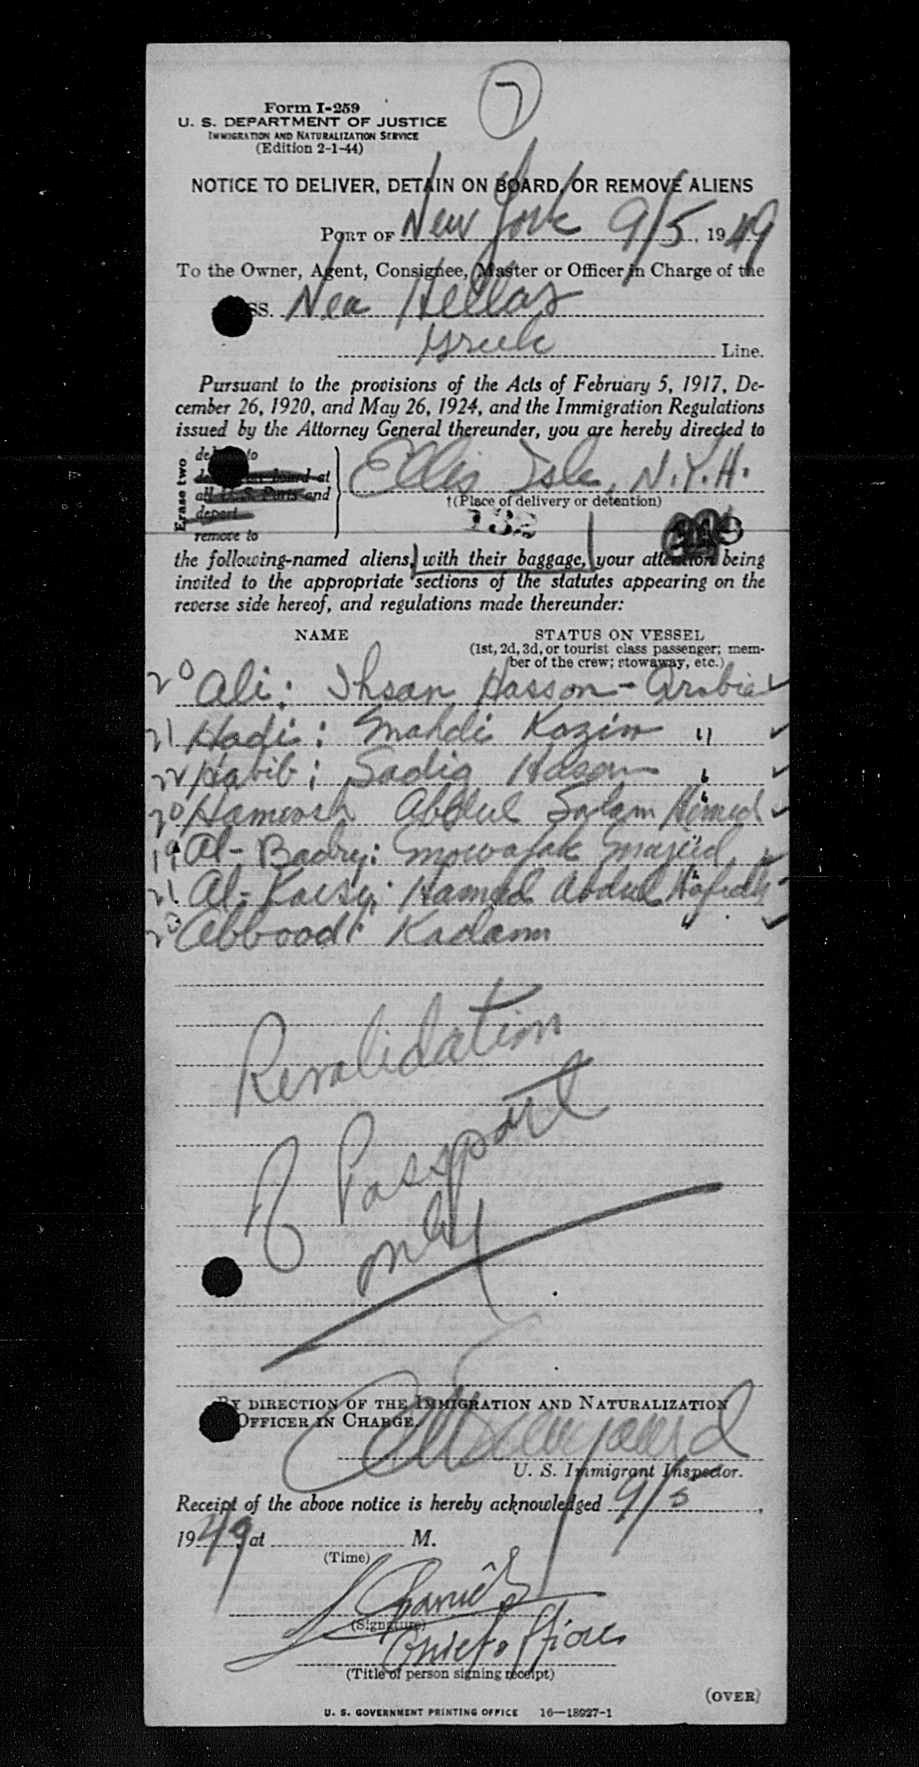 7
Form I-259
U. S. DEPARTMENT OF JUSTICE
IMMIGRATION AND NATURALIZATION SERVICE
(Edition 2-1-44)
NOTICE TO DELIVER, DETAIN ON BOARD, OR REMOVE ALIENS
PORT OF New York 9/5, 1949
To the Owner, Agent, Consignee, Master or Officer in Charge of the
SS. Nea Hellas
Greek Line.
Pursuant to the provisions of the Acts of February 5, 1917, De-
cember 26, 1920, and May 26, 1924, and the Immigration Regulations
issued by the Attorney General thereunder, you are hereby directed to
Erase two
deliver to
detain on board at
all U. S. Ports and
deport
remove to
Ellis Isle, N.Y.H.
†(Place of delivery or detention)
132
the following-named aliens, with their baggage, your attention being
invited to the appropriate sections of the statutes appearing on the
reverse side hereof, and regulations made thereunder:
NAME STATUS ON VESSEL
(1st, 2d, 3d, or tourist class passenger; mem-
ber of the crew; stowaway, etc.)
20 Ali: Ihsan Hasson - Arabia ✓
21 Hadi: Mahdi Kazim " ✓
22 Habib: Sadiq Hason " ✓
20 Abdul Salam Hamid ✓
19 Al-Badry: Mowafak Majid ✓
21 Al-Kaisy: Hamid Abdul Hafidh
20 Abbood: Kadam " ✓
Revalidation
of Passport
only
BY DIRECTION OF THE IMMIGRATION AND NATURALIZATION
OFFICER IN CHARGE.
U. S. Immigrant Inspector.
Receipt of the above notice is hereby acknowledged 9/5,
1949 at M.
(Time)
(Signature)
Chief Officer
(Title of person signing receipt)
(OVER)
U. S. GOVERNMENT PRINTING OFFICE 16—18927-1